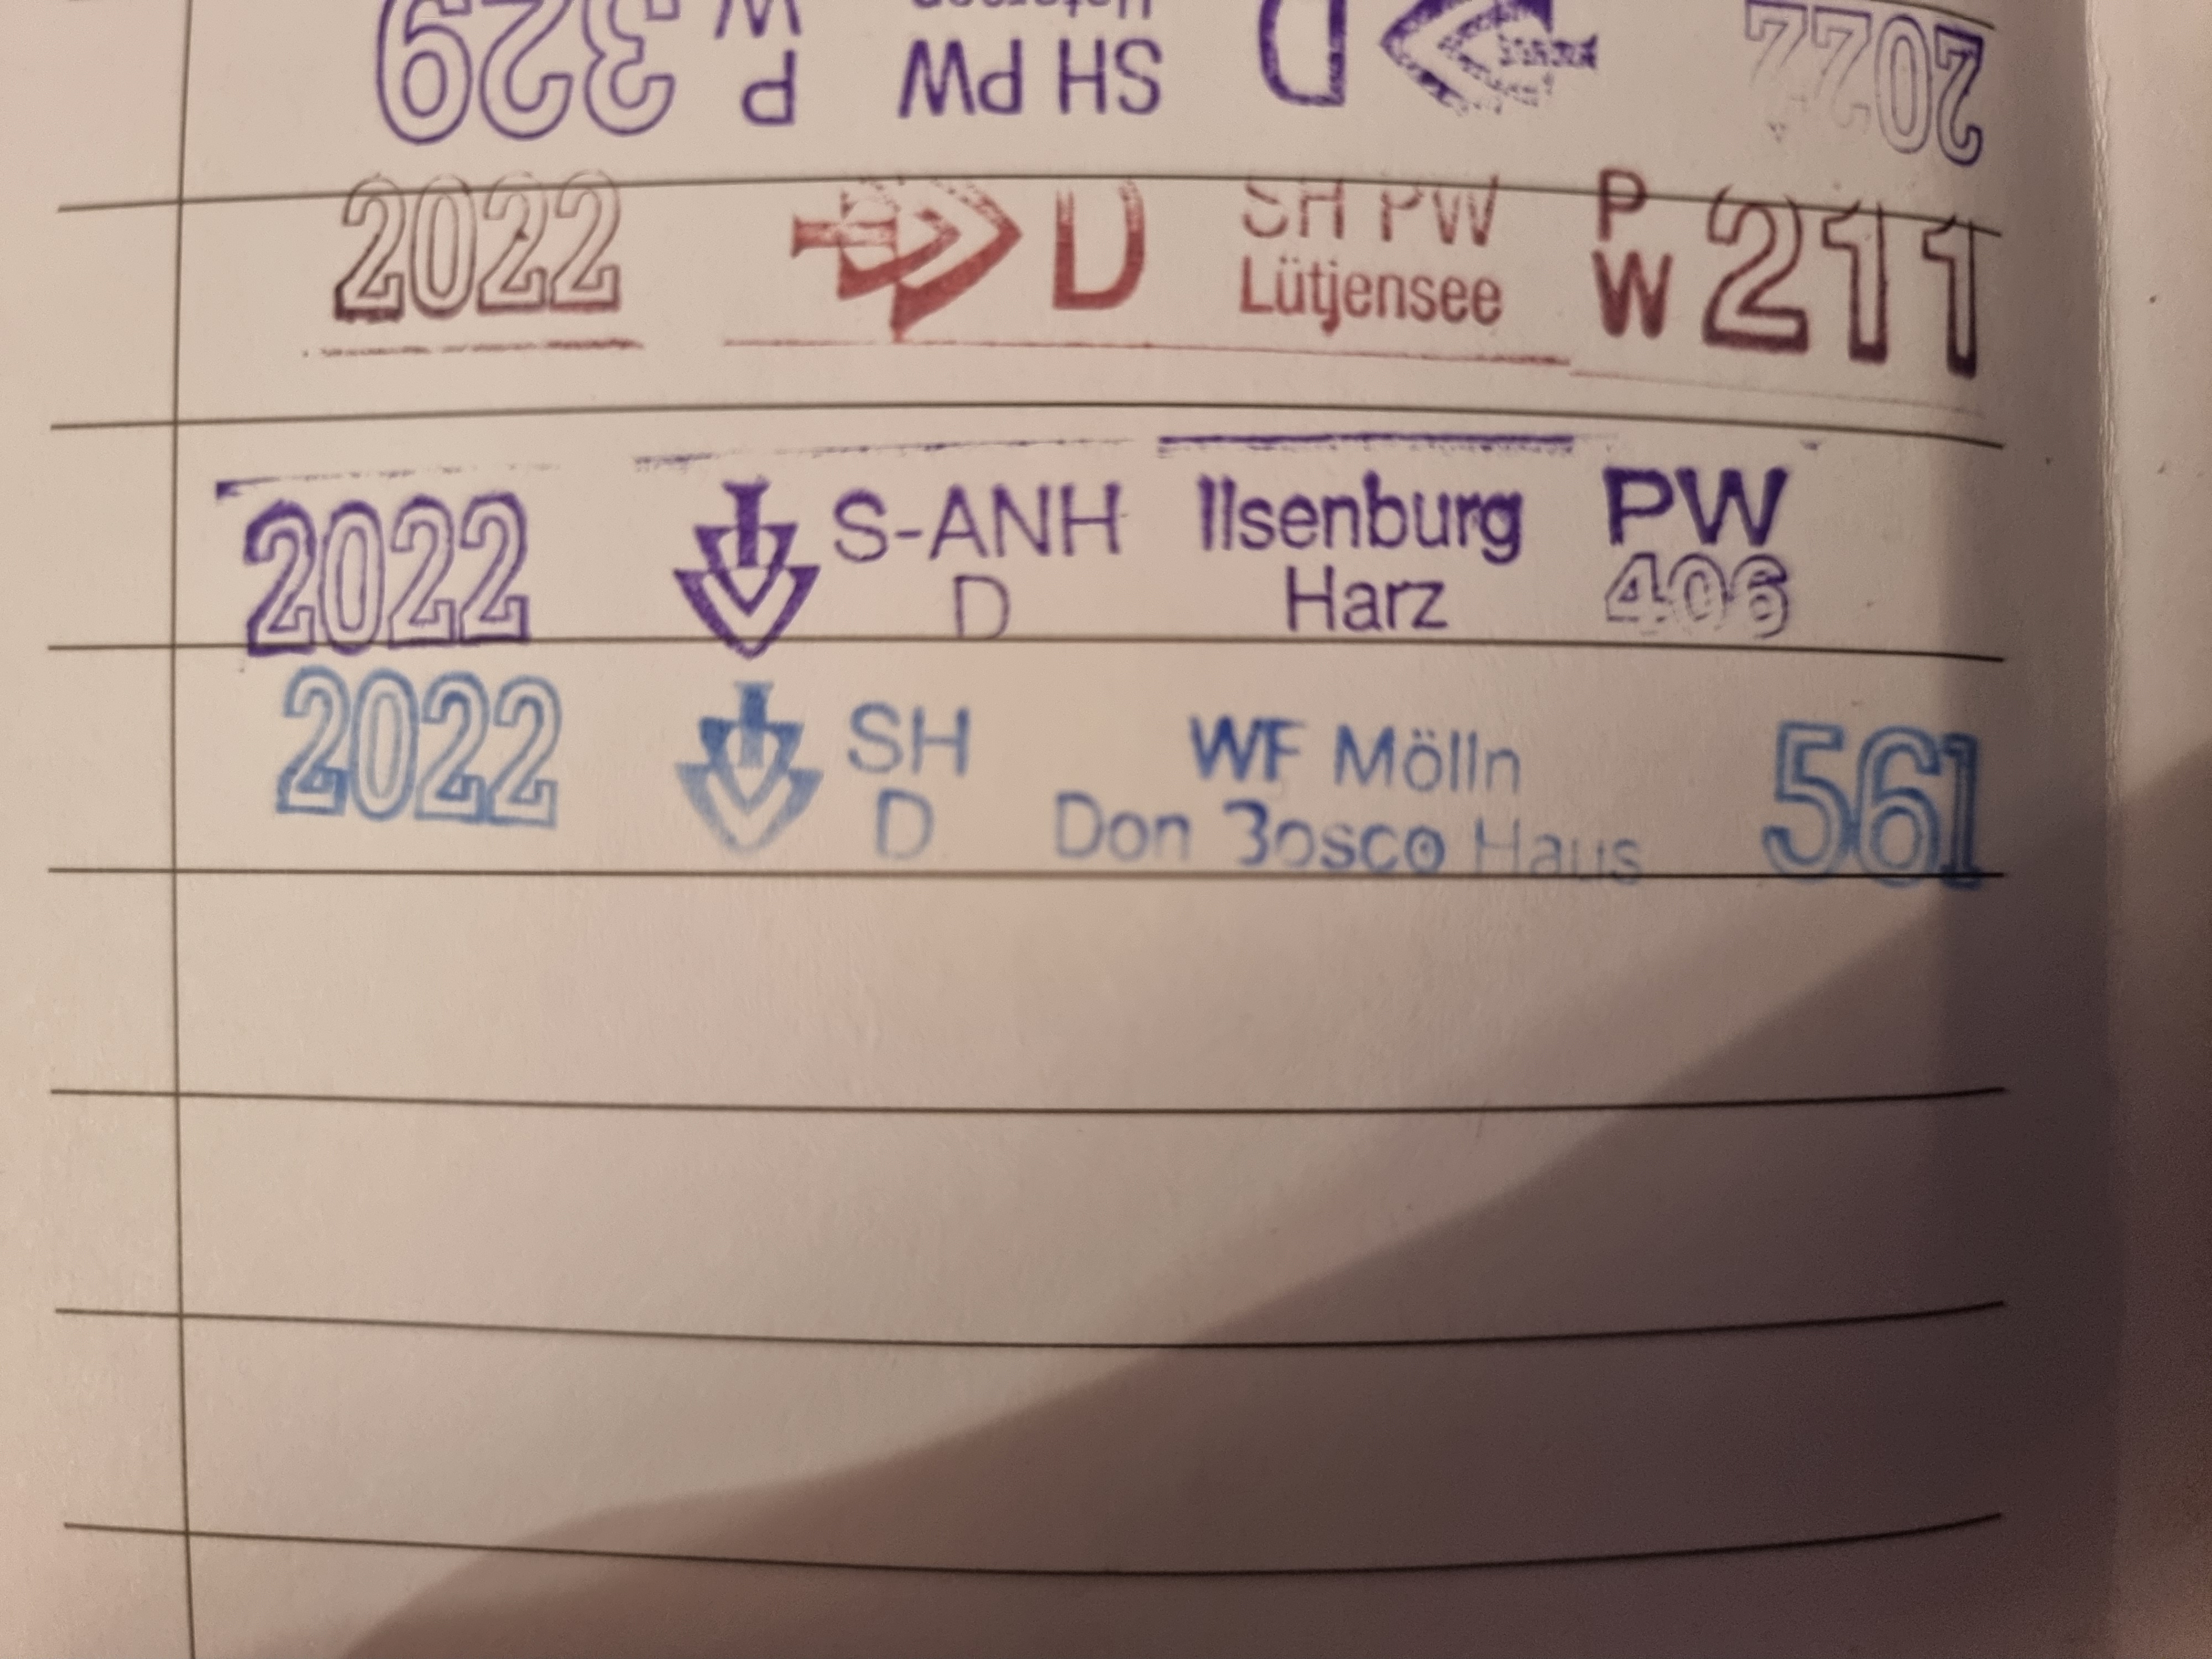 2022 D SH PW P W 329
2022 D SH PW Lütjensee P W 211
2022 S-ANH D Ilsenburg Harz PW 406
2022 SH D WF Mölln Don Bosco Haus 561